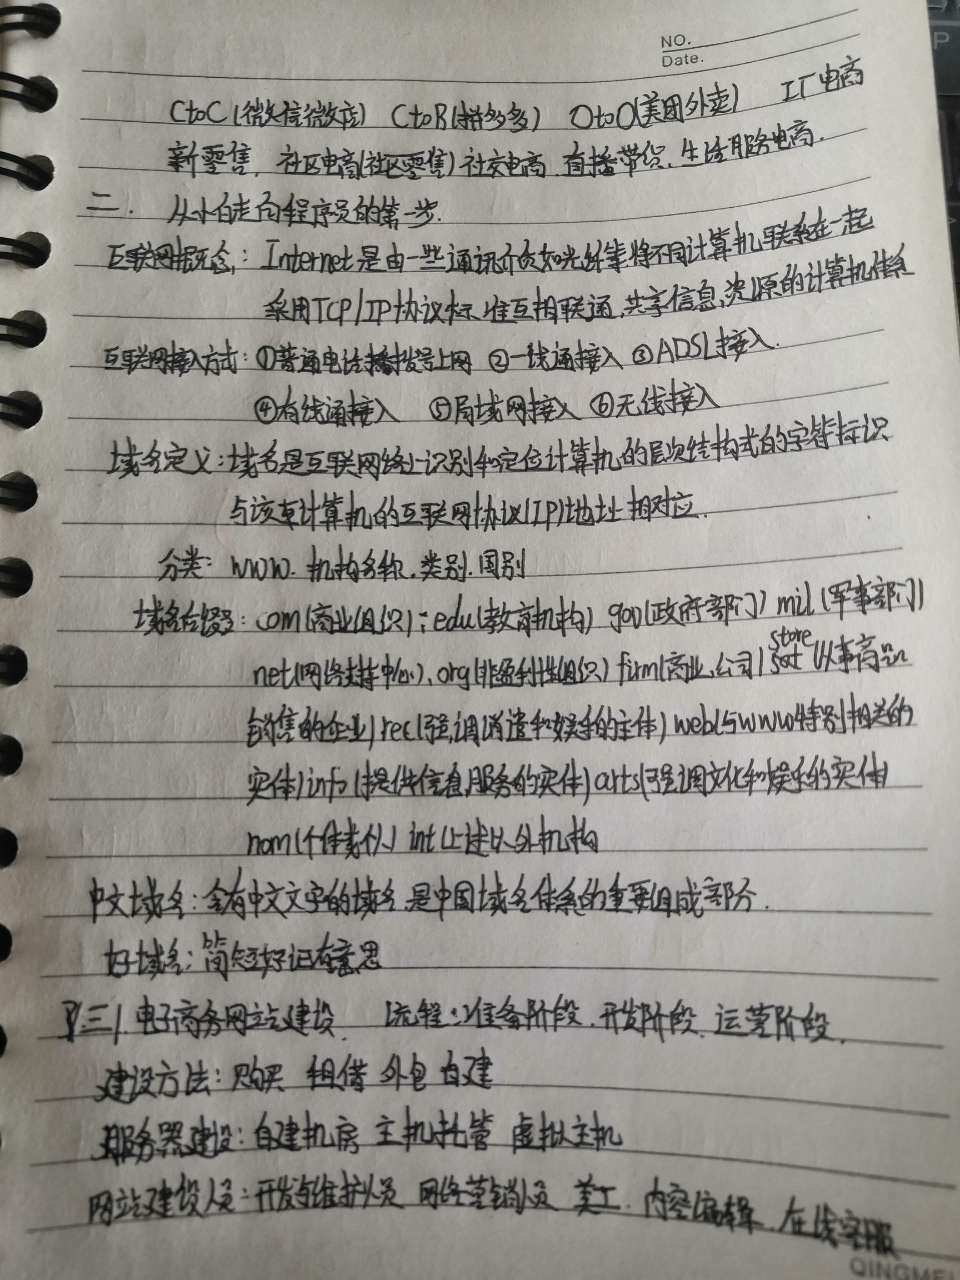 NO.
Date.
CtoC(微信微店) CtoB(拼多多) OtoO(美团外卖) 工厂电商
新零售, 社区电商(社区零售) 社交电商. 直播带货. 生活服务电商.
二. 从小白走向程序员的第一步.
互联网概念: Internet是由一些通讯介质如光纤等将不同计算机联系在一起
采用TCP/IP协议标准互相联通,共享信息,资源的计算机体系
互联网接入方式: ①普通电话拨号上网 ②一线通接入 ③ADSL接入.
④有线通接入 ⑤局域网接入 ⑥无线接入
域名定义:域名是互联网络上识别和定位计算机的层次结构式的字符标识
与该计算机的互联网协议(IP)地址相对应.
分类: www. 机构名称. 类别. 国别
域名后缀: com(商业组织); edu(教育机构) gov(政府部门) mil(军事部门)
net(网络支持中心), org(非盈利性组织) firm(商业,公司) store (从事商品
销售的企业) rec(强调消遣和娱乐的主体) web(与www特别相关的
实体) info(提供信息服务的实体) arts(强调文化和娱乐的实体)
nom(个体或个人) int(上述以外机构
中文域名: 含有中文文字的域名 是中国域名体系的重要组成部分.
好域名: 简短好记有意思
三) 电子商务网站建设. 流程: 准备阶段. 开发阶段. 运营阶段.
建设方法: 购买 租借 外包 自建
服务器建设: 自建机房 主机托管 虚拟主机
网站建设人员: 开发与维护人员 网络营销人员 美工. 内容编辑. 在线客服